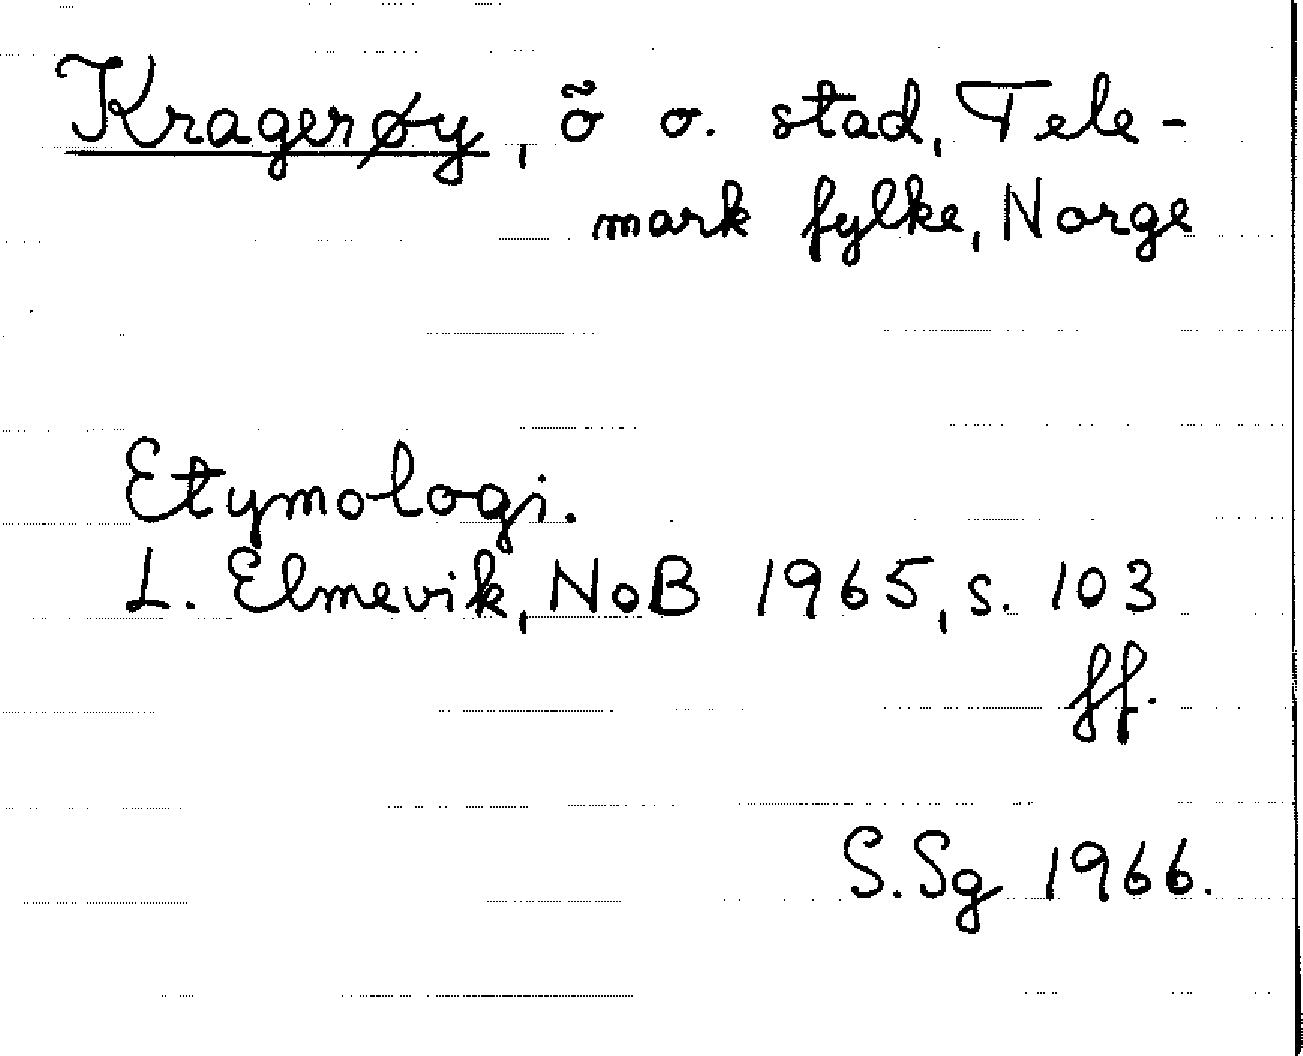 Kragerøy, ö o. stad, Tele-
mark fylke, Norge
Etymologi.
L. Elmevik, NoB 1965, s. 103
ff.
S.Sg 1966.